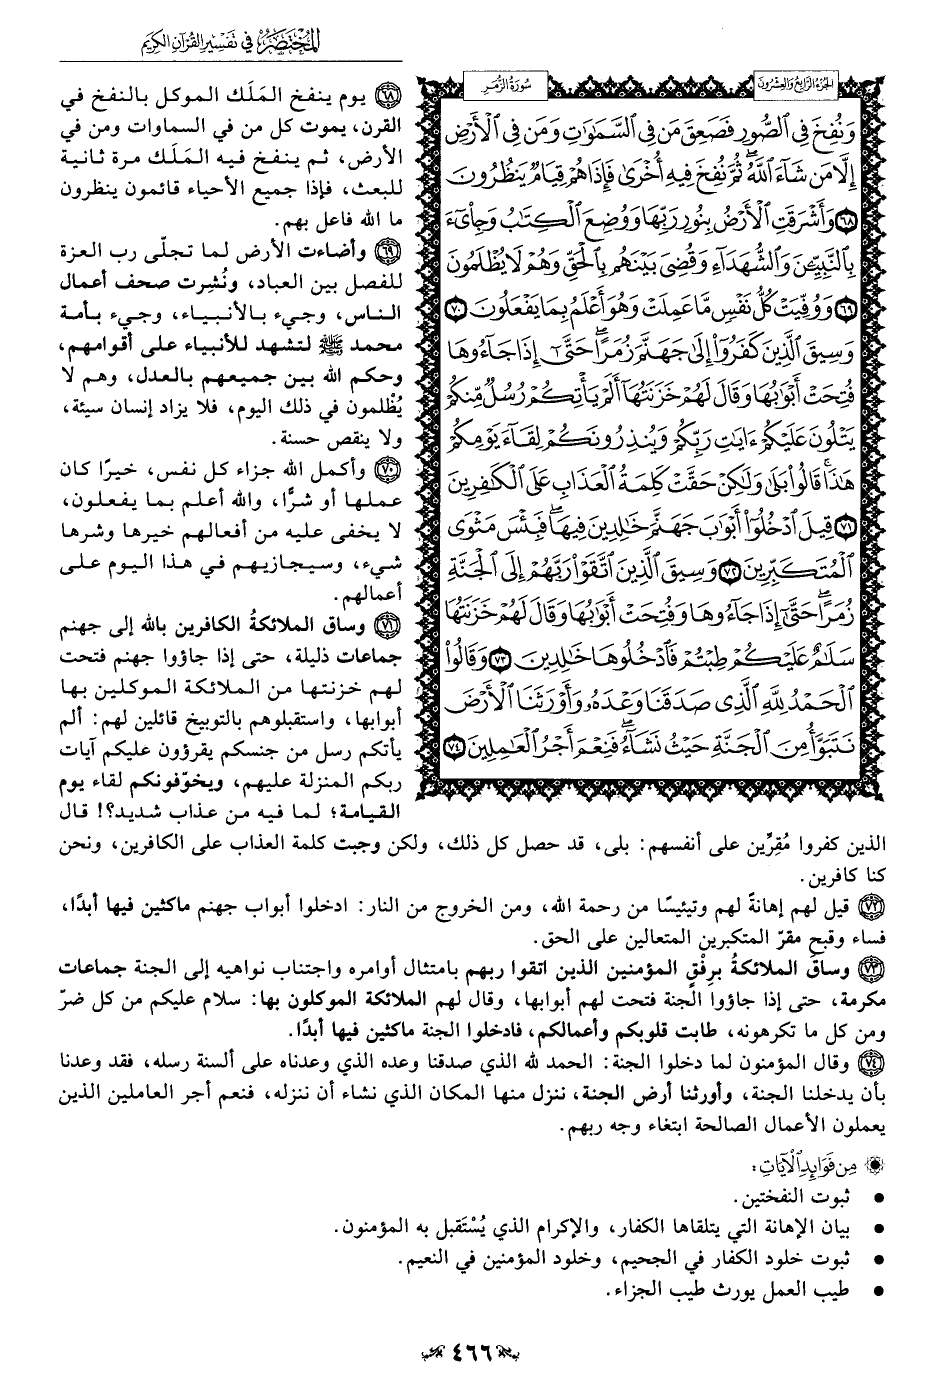 المختصر في تفسير القرآن الكريم
الجزء الرابع والعشرون
سورة الزمر
وَنُفِخَ فِي ٱلصُّورِ فَصَعِقَ مَن فِي ٱلسَّمَٰوَٰتِ وَمَن فِي ٱلْأَرْضِ
إِلَّا مَن شَآءَ ٱللَّهُ ۖ ثُمَّ نُفِخَ فِيهِ أُخْرَىٰ فَإِذَا هُمْ قِيَامٌ يَنظُرُونَ
٦٨ وَأَشْرَقَتِ ٱلْأَرْضُ بِنُورِ رَبِّهَا وَوُضِعَ ٱلْكِتَٰبُ وَجِا۟يٓءَ
بِٱلنَّبِيِّۦنَ وَٱلشُّهَدَآءِ وَقُضِيَ بَيْنَهُم بِٱلْحَقِّ وَهُمْ لَا يُظْلَمُونَ
٦٩ وَوُفِّيَتْ كُلُّ نَفْسٍ مَّا عَمِلَتْ وَهُوَ أَعْلَمُ بِمَا يَفْعَلُونَ ٧٠
وَسِيقَ ٱلَّذِينَ كَفَرُوٓا۟ إِلَىٰ جَهَنَّمَ زُمَرًا ۖ حَتَّىٰٓ إِذَا جَآءُوهَا
فُتِحَتْ أَبْوَٰبُهَا وَقَالَ لَهُمْ خَزَنَتُهَآ أَلَمْ يَأْتِكُمْ رُسُلٌ مِّنكُمْ
يَتْلُونَ عَلَيْكُمْ ءَايَٰتِ رَبِّكُمْ وَيُنذِرُونَكُمْ لِقَآءَ يَوْمِكُمْ
هَٰذَا ۚ قَالُوا۟ بَلَىٰ وَلَٰكِنْ حَقَّتْ كَلِمَةُ ٱلْعَذَابِ عَلَى ٱلْكَٰفِرِينَ
٧١ قِيلَ ٱدْخُلُوٓا۟ أَبْوَٰبَ جَهَنَّمَ خَٰلِدِينَ فِيهَا ۖ فَبِئْسَ مَثْوَى
ٱلْمُتَكَبِّرِينَ ٧٢ وَسِيقَ ٱلَّذِينَ ٱتَّقَوْا۟ رَبَّهُمْ إِلَى ٱلْجَنَّةِ
زُمَرًا ۖ حَتَّىٰٓ إِذَا جَآءُوهَا وَفُتِحَتْ أَبْوَٰبُهَا وَقَالَ لَهُمْ خَزَنَتُهَا
سَلَٰمٌ عَلَيْكُمْ طِبْتُمْ فَٱدْخُلُوهَا خَٰلِدِينَ ٧٣ وَقَالُوا۟
ٱلْحَمْدُ لِلَّهِ ٱلَّذِي صَدَقَنَا وَعْدَهُۥ وَأَوْرَثَنَا ٱلْأَرْضَ
نَتَبَوَّأُ مِنَ ٱلْجَنَّةِ حَيْثُ نَشَآءُ ۖ فَنِعْمَ أَجْرُ ٱلْعَٰمِلِينَ ٧٤
٦٨ يوم ينفخ المَلَك الموكل بالنفخ في
القرن، يموت كل من في السماوات ومن في
الأرض، ثم ينفخ فيه المَلَك مرة ثانية
للبعث، فإذا جميع الأحياء قائمون ينظرون
ما الله فاعل بهم.
٦٩ وأضاءت الأرض لما تجلّى رب العزة
للفصل بين العباد، ونُشِرت صحف أعمال
الناس، وجيء بالأنبياء، وجيء بأمة
محمد ﷺ لتشهد للأنبياء على أقوامهم،
وحكم الله بين جميعهم بالعدل، وهم لا
يُظْلمون في ذلك اليوم، فلا يزاد إنسان سيئة،
ولا ينقص حسنة.
٧٠ وأكمل الله جزاء كل نفس، خيرًا كان
عملها أو شرًّا، والله أعلم بما يفعلون،
لا يخفى عليه من أفعالهم خيرها وشرها
شيء، وسيجازيهم في هذا اليوم على
أعمالهم.
٧١ وساق الملائكةُ الكافرين بالله إلى جهنم
جماعات ذليلة، حتى إذا جاؤوا جهنم فتحت
لهم خزنتها من الملائكة الموكلين بها
أبوابها، واستقبلوهم بالتوبيخ قائلين لهم: ألم
يأتكم رسل من جنسكم يقرؤون عليكم آيات
ربكم المنزلة عليهم، ويخوّفونكم لقاء يوم
القيامة؛ لما فيه من عذاب شديد؟! قال
الذين كفروا مُقِرِّين على أنفسهم: بلى، قد حصل كل ذلك، ولكن وجبت كلمة العذاب على الكافرين، ونحن
كنا كافرين.
٧٢ قيل لهم إهانةً لهم وتيئيسًا من رحمة الله، ومن الخروج من النار: ادخلوا أبواب جهنم ماكثين فيها أبدًا،
فساء وقبح مقرّ المتكبرين المتعالين على الحق.
٧٣ وساق الملائكةُ برِفْقٍ المؤمنين الذين اتقوا ربهم بامتثال أوامره واجتناب نواهيه إلى الجنة جماعات
مكرمة، حتى إذا جاؤوا الجنة فتحت لهم أبوابها، وقال لهم الملائكة الموكلون بها: سلام عليكم من كل ضرّ
ومن كل ما تكرهونه، طابت قلوبكم وأعمالكم، فادخلوا الجنة ماكثين فيها أبدًا.
٧٤ وقال المؤمنون لما دخلوا الجنة: الحمد لله الذي صدقنا وعده الذي وعدناه على ألسنة رسله، فقد وعدنا
بأن يدخلنا الجنة، وأورثنا أرض الجنة، ننزل منها المكان الذي نشاء أن ننزله، فنعم أجر العاملين الذين
يعملون الأعمال الصالحة ابتغاء وجه ربهم.
من فوائد الآيات:
● ثبوت النفختين.
● بيان الإهانة التي يتلقاها الكفار، والإكرام الذي يُسْتَقبل به المؤمنون.
● ثبوت خلود الكفار في الجحيم، وخلود المؤمنين في النعيم.
● طيب العمل يورث طيب الجزاء.
٤٦٦